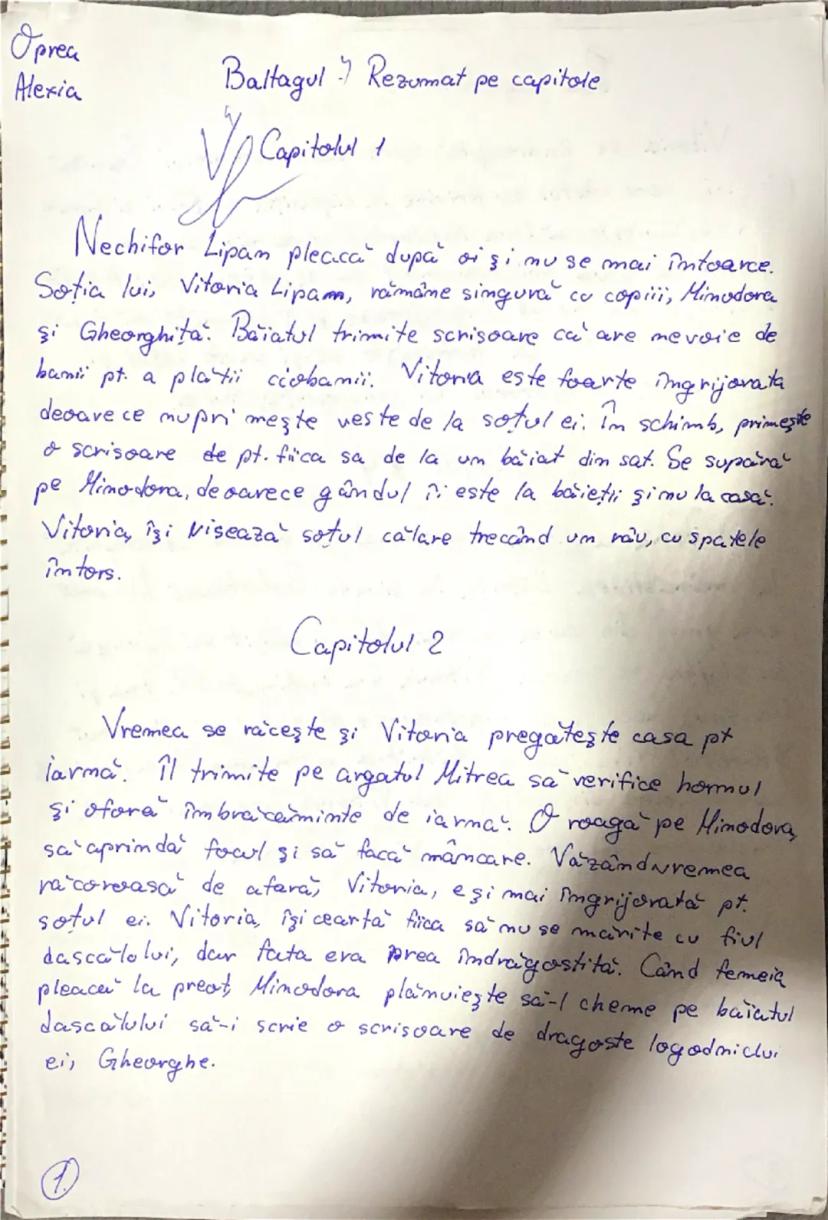 Oprea
Alexia
Baltagul :) Rezumat pe capitole
Capitolul 1
Nechifor Lipan pleacă după oi și nu se mai întoarce.
Soția lui, Vitoria Lipan, rămâne singură cu copiii, Minodora
și Gheorghiță. Băiatul trimite scrisoare că are nevoie de
banii pt. a plăti ciobanii. Vitoria este foarte îngrijorata
deoarece nu primește veste de la soțul ei. În schimb, primește
o scrisoare de pt. fiica sa de la un băiat din sat. Se supără
pe Minodora, deoarece gândul îi este la băieții și nu la casă.
Vitoria, își visează soțul călare trecând un râu, cu spatele
întors.
Capitolul 2
Vremea se răcește și Vitoria pregătește casa pt
iarnă. Îl trimite pe argatul Mitrea să verifice hornul
și oferă îmbrăcăminte de iarnă. O roagă pe Minodora,
să aprindă focul și să facă mâncare. Văzând vremea
răcoroasă de afară, Vitoria, e și mai îngrijorată pt.
soțul ei. Vitoria, își ceartă fiica să nu se mărite cu fiul
dascălului, dar fata era prea îndrăgostită. Când femeia
pleacă la preot, Minodora plănuiește să-l cheme pe băiatul
dascălului să-i scrie o scrisoare de dragoste logodnicului
ei, Gheorghe.
1.